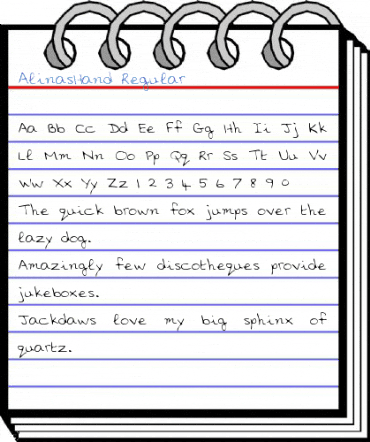 AlinasHand Regular
Aa Bb Cc Dd Ee Ff Gg Hh Ii Jj Kk
Ll Mm Nn Oo Pp Qq Rr Ss Tt Uu Vv
Ww Xx Yy Zz 1 2 3 4 5 6 7 8 9 0
The quick brown fox jumps over the
lazy dog.
Amazingly few discotheques provide
jukeboxes.
Jackdaws love my big sphinx of
quartz.